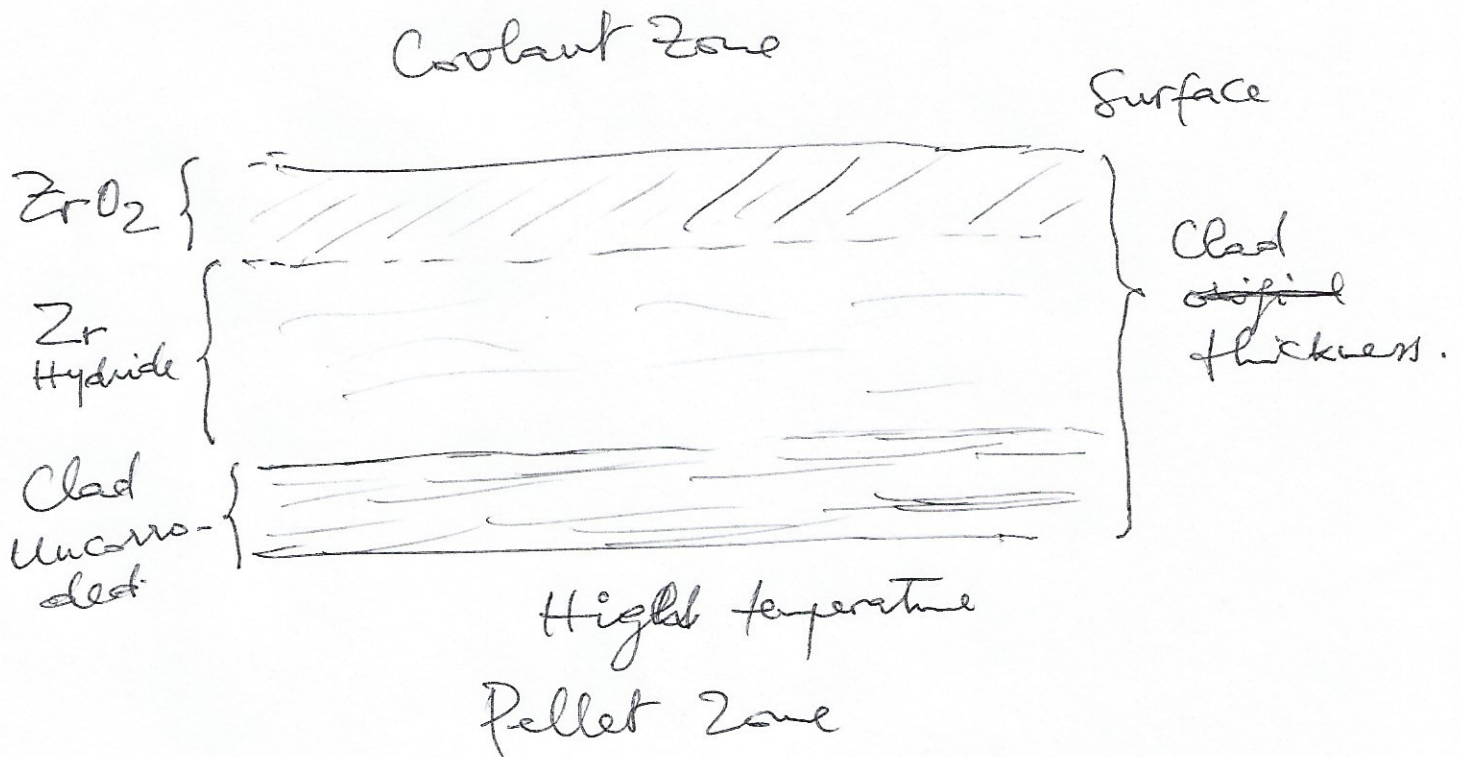 Coolant Zone
Surface
ZrO2
Zr
Hydride
Clad
Uncorro-
ded
Clad
original
thickness.
High temperature
Pellet Zone